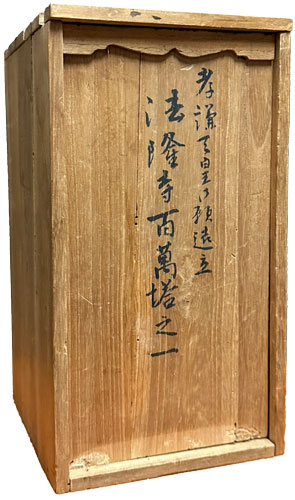 孝謙天皇御願造立
法隆寺百萬塔之一